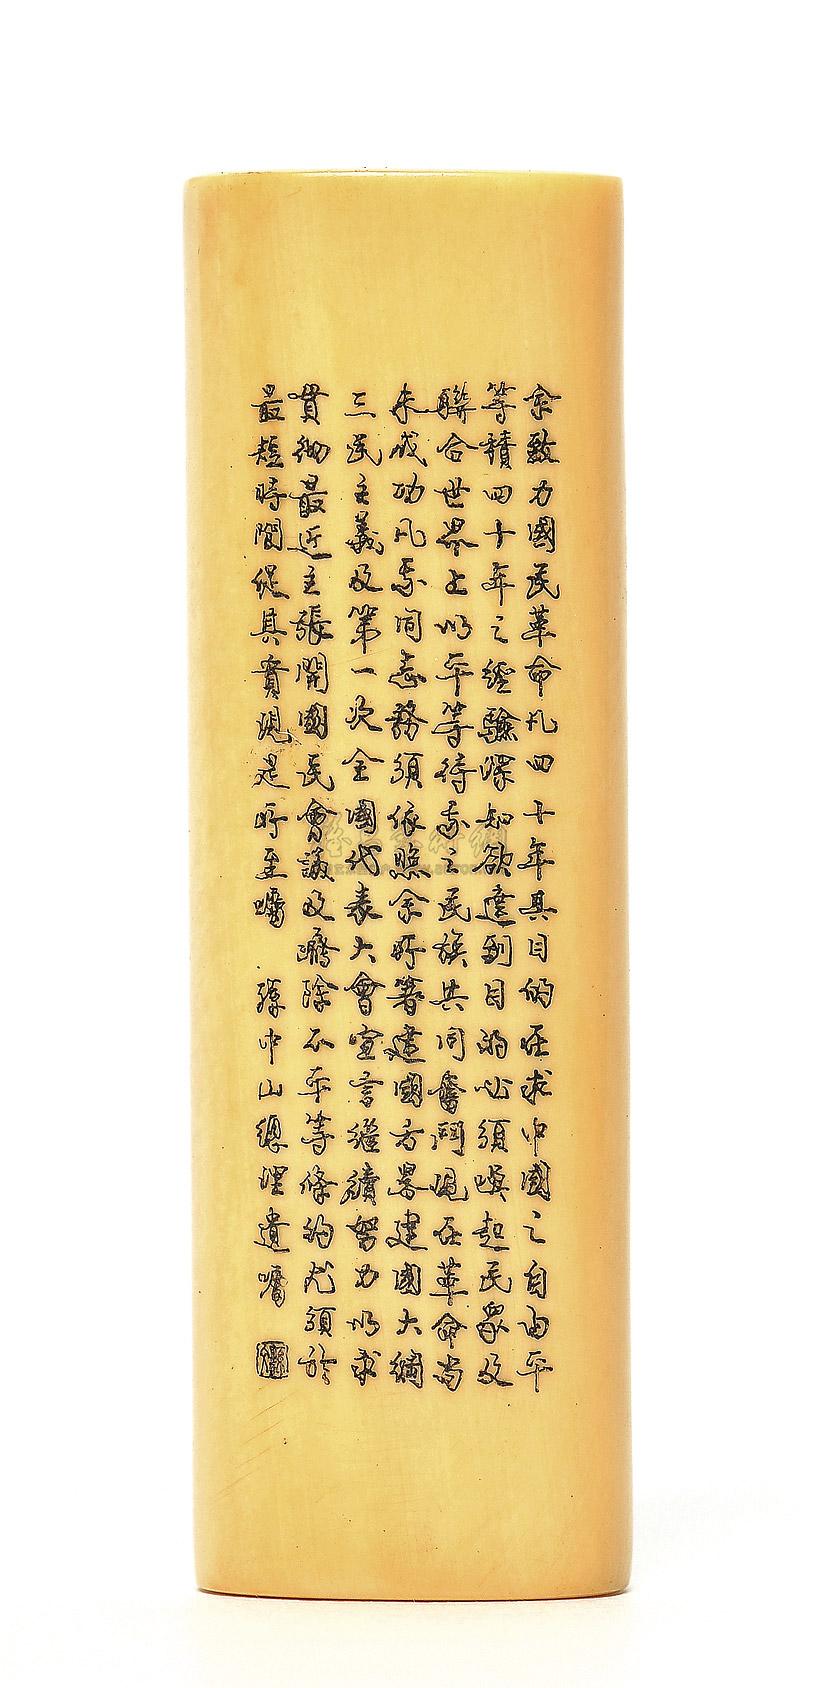 余致力國民革命凡四十年其目的在求中國之自由平
等積四十年之經驗深知欲達到目的必須喚起民眾及
聯合世界上以平等待我之民族共同奮鬥現在革命尚
未成功凡我同志務須依照余所著建國方畧建國大綱
三民主義及第一次全國代表大會宣言繼續努力以求
貫徹最近主張開國民會議及廢除不平等條約尤須於
最短時間促其實現是所至囑 孫中山總理遺囑